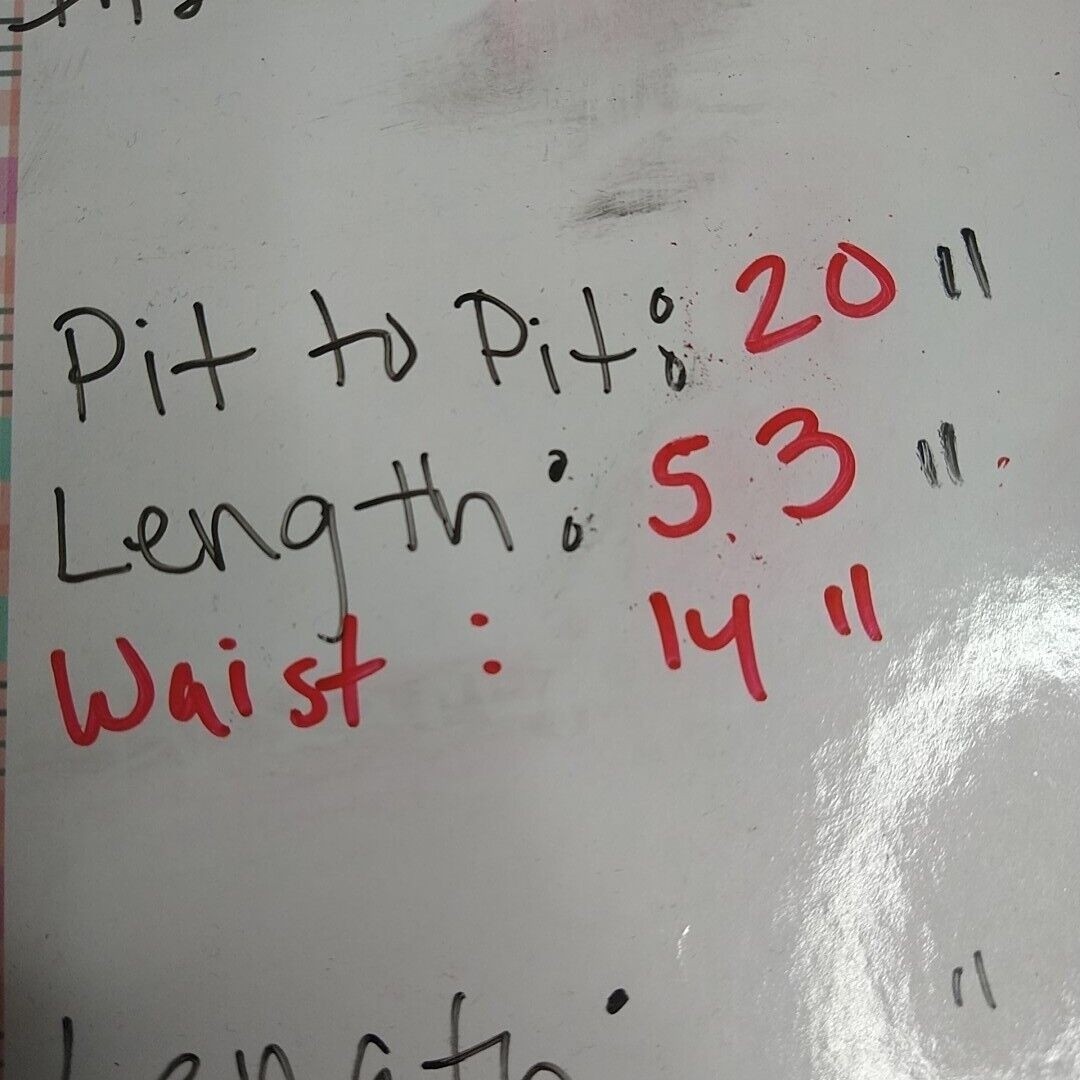 Pit to Pit: 20 "
Length: 53 "
Waist: 14 "
Length: "